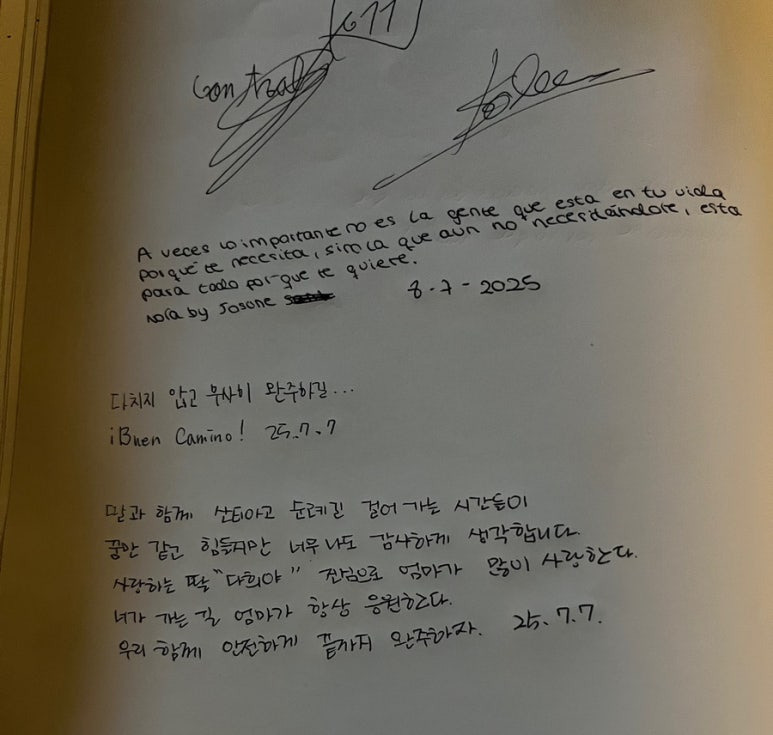 A veces lo importante no es la gente que esta en tu vida
porqué te necesita, sino la que aún no necesitándote, esta
para todo porque te quiere.
by Josone
8-7-2025
다치지 않고 무사히 완주하길...
¡Buen Camino! 25.7.7
딸과 함께 산티아고 순례길 걸어 가는 시간들이
꿈만 같고 힘들지만 너무나도 감사하게 생각합니다.
사랑하는 딸 "다희야" 진심으로 엄마가 많이 사랑한다.
너가 가는 길 엄마가 항상 응원한다.
우리 함께 안전하게 끝까지 완주하자. 25.7.7.